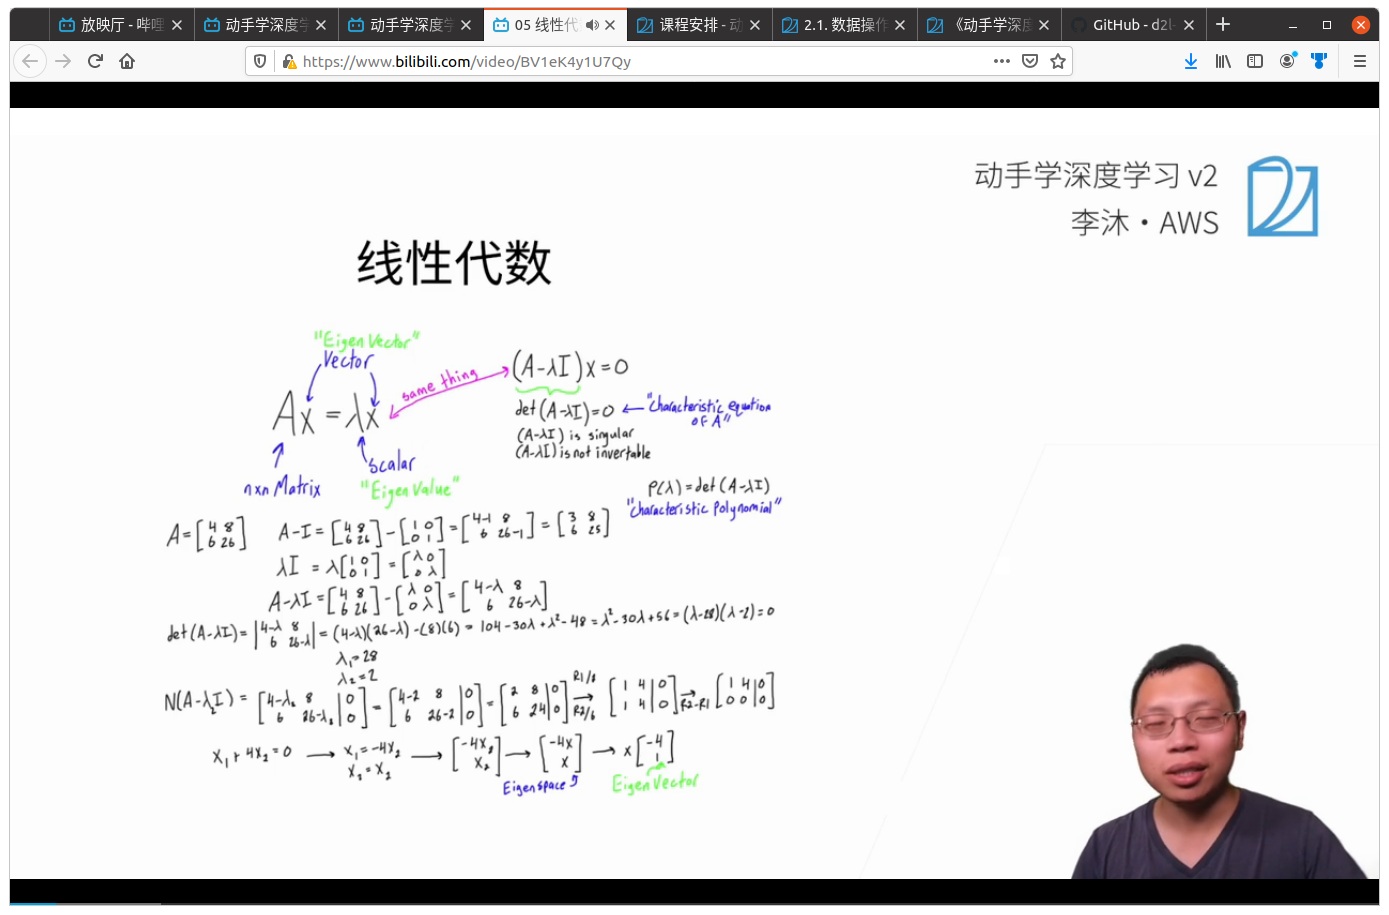 放映厅 - 哔哩
动手学深度学
动手学深度学
05 线性代
课程安排 - 动
2.1. 数据操作
《动手学深度
GitHub - d2l-
https://www.bilibili.com/video/BV1eK4y1U7Qy
动手学深度学习 v2
李沐・AWS
线性代数
"Eigen Vector"
Vector
same thing
(A-λI)x=0
Ax = λx
det(A-λI)=0 ← "Characteristic equation of A"
(A-λI) is singular
(A-λI) is not invertable
scalar
nxn Matrix
"Eigen Value"
P(λ)=det(A-λI)
"Characteristic Polynomial"
A=[4 8 6 26] A-I=[4 8 6 26]-[1 0 0 1]=[4-1 8 6 26-1]=[3 8 6 25]
λI = λ[1 0 0 1]=[λ 0 0 λ]
A-λI=[4 8 6 26]-[λ 0 0 λ]=[4-λ 8 6 26-λ]
det(A-λI)=|4-λ 8 6 26-λ|=(4-λ)(26-λ)-(8)(6)= 104-30λ+λ²-48=λ²-30λ+56=(λ-28)(λ-2)=0
λ₁=28
λ₂=2
N(A-λ₂I)=[4-λ₂ 8|0 6 26-λ₂|0]=[4-2 8|0 6 26-2|0]=[2 8|0 6 24|0] R1/2 → R2/6 [1 4|0 1 4|0] → R2-R1 [1 4|0 0 0|0]
x₁+4x₂=0 → x₁=-4x₂ x₂=x₂ → [-4x₂ x₂] → [-4x x] → x[-4 1]
Eigenspace
Eigen Vector